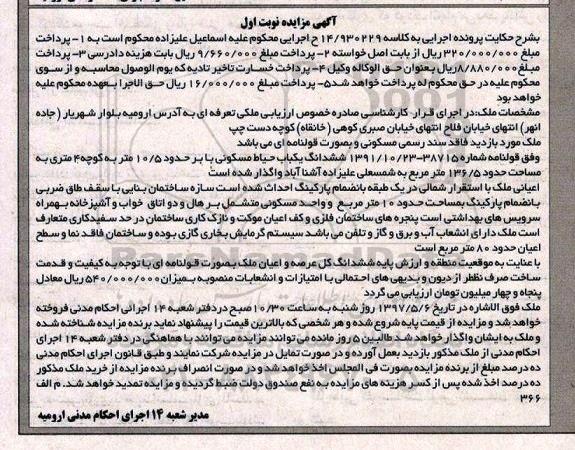 آگهی مزایده نوبت اول
بشرح حکایت پرونده اجرایی به کلاسه ۱۴/۹۳۰۲۲۹ ح اجرایی محکوم علیه اسماعیل علیزاده محکوم است به ۱- پرداخت
مبلغ ۳۲۰/۰۰۰/۰۰۰ ریال از بابت اصل خواسته ۲- پرداخت مبلغ ۹/۶۶۰/۰۰۰ ریال بابت هزینه دادرسی ۳- پرداخت
مبلغ ۸/۸۸۰/۰۰۰ ریال بعنوان حق الوکاله وکیل ۴- پرداخت خسارت تاخیر تادیه که یوم الوصول محاسبه و از سوی
محکوم علیه در حق محکوم له پرداخت خواهد شد ۵- پرداخت مبلغ ۱۶/۰۰۰/۰۰۰ ریال حق الاجرا بعهده محکوم علیه
خواهد بود
مشخصات ملک: در اجرای قرار کارشناسی صادره خصوص ارزیابی ملکی تعرفه ای به آدرس ارومیه بلوار شهریار (جاده
انهر) انتهای خیابان فلاح انتهای خیابان صبری کوهی (خانقاه) کوچه دست چپ
ملک مورد بازدید فاقد سند رسمی مسکونی و بصورت قولنامه ای می باشد
وفق قولنامه شماره ۳۸۷۱۵-۱۳۹۱/۱۰/۲۳ ششدانگ یکباب حیاط مسکونی با بر حدود ۱۰/۵ متر به کوچه ۴ متری به
مساحت حدود ۱۳۶/۵ متر مربع به شمسعلی علیزاده آشنا آباد واگذار شده است
اعیانی ملک با استقرار شمالی در یک طبقه بانضمام پارکینگ احداث شده است سازه ساختمان بنایی با سقف طاق ضربی
بانضمام پارکینگ بمساحت حدود ۱۰ متر مربع و واحد مسکونی متشمل بر هال و دو اتاق خواب و آشپزخانه بهمراه
سرویس های بهداشتی است پنجره های ساختمان فلزی و کف اعیان موکت و نازک کاری ساختمان در حد سفیدکاری متعارف
است ملک دارای انشعاب آب و برق و گاز و تلفن می باشد سیستم گرمایش بخاری گازی بوده و ساختمان فاقد نما و سطح
اعیان حدود ۸۰ متر مربع است
با عنایت به موقعیت منطقه و ارزش پایه ششدانگ کل عرصه و اعیان ملک بصورت قولنامه ای با توجه به کیفیت و قدمت
ساخت صرف نظر از دیون و بدیهی های احتمالی با امتیازات و انشعابات منصوبه بمیزان ۵۴۰/۰۰۰/۰۰۰ ریال معادل
پنجاه و چهار میلیون تومان ارزیابی می گردد
ملک فوق الاشاره در تاریخ ۱۳۹۷/۵/۶ روز شنبه به ساعت ۱۰/۳۰ صبح در دفتر شعبه ۱۴ اجرائی احکام مدنی فروخته
خواهد شد و مزایده از قیمت پایه شروع شده و هر شخصی که بالاترین قیمت را پیشنهاد نماید برنده مزایده شناخته شده
و ملک به ایشان واگذار خواهد شد طالبین ۵ روز مانده می توانند مزایده می توانند با هماهنگی در دفتر شعبه ۱۴ اجرای
احکام مدنی از ملک مذکور بازدید بعمل آورده و در صورت تمایل در مزایده شرکت نمایند و طبق قانون اجرای احکام مدنی
ده درصد مبلغ از برنده مزایده بصورت فی المجلس اخذ خواهد شد و در صورت انصراف برنده مزایده از خرید ملک مذکور
ده درصد اخذ شده پس از کسر هزینه های مزایده به نفع صندوق دولت ضبط گردیده و مزایده تمدید خواهد شد. م الف
۳۶۶
مدیر شعبه ۱۴ اجرای احکام مدنی ارومیه